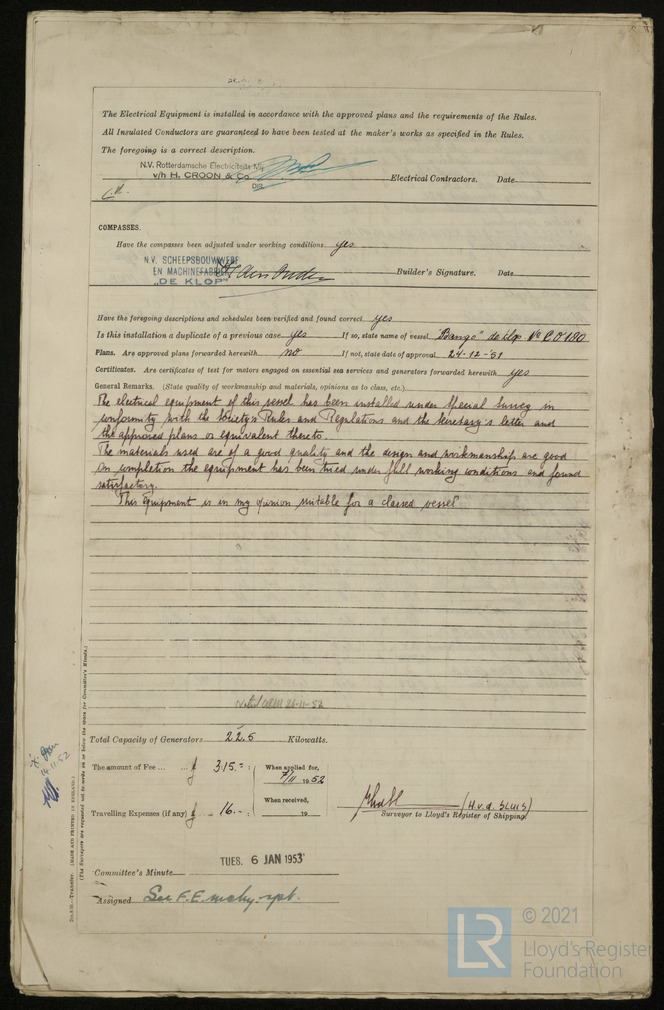 The Electrical Equipment is installed in accordance with the approved plans and the requirements of the Rules.
All Insulated Conductors are guaranteed to have been tested at the maker's works as specified in the Rules.
The foregoing is a correct description.
N.V. Rotterdamsche Electriciteits Mij
v/h H. CROON & Co
DIR.
Electrical Contractors. Date
COMPASSES.
Have the compasses been adjusted under working conditions yes
N.V. SCHEEPSBOUWWERF
EN MACHINEFABRIEK
"DE KLOP"
Builder's Signature. Date
Have the foregoing descriptions and schedules been verified and found correct yes
Is this installation a duplicate of a previous case yes If so, state name of vessel "Banzo" de Klop No CO 180
Plans. Are approved plans forwarded herewith no If not, state date of approval 24-12-'51
Certificates. Are certificates of test for motors engaged on essential sea services and generators forwarded herewith yes
General Remarks. (State quality of workmanship and materials, opinions as to class, etc.)
The electrical equipment of this vessel has been installed under Special Survey in
conformity with the Society's Rules and Regulations and the Secretary's letter and
the approved plans or equivalent thereto.
The materials used are of a good quality and the design and workmanship are good
On completion the equipment has been tried under full working conditions and found
satisfactory.
This equipment is in my opinion suitable for a classed vessel
Noted 26-11-52
Total Capacity of Generators 22.5 Kilowatts.
The amount of Fee ... £ 315.=: When applied for,
7/11 1952
Travelling Expenses (if any) £ 16.-: When received,
19
(H.v.d. SLUIS)
Surveyor to Lloyd's Register of Shipping.
TUES. 6 JAN 1953
Committee's Minute
Assigned See F.E. mchy. rpt.
14.11.52
(MADE AND PRINTED IN ENGLAND.)
(The Surveyors are requested not to write on or below the space for Committee's Minute.)
LR
© 2021
Lloyd's Register
Foundation